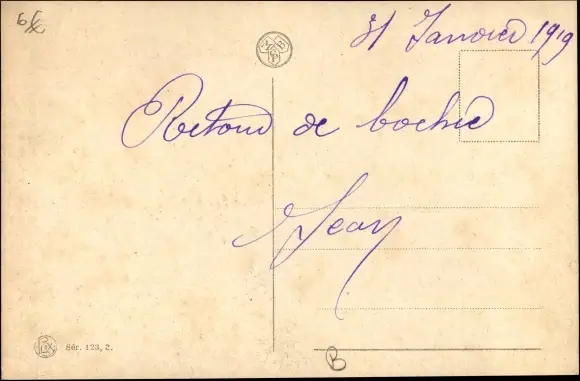 31 Janvier 1919
Retour de bochie
Jean
Sér. 123, 2.
B